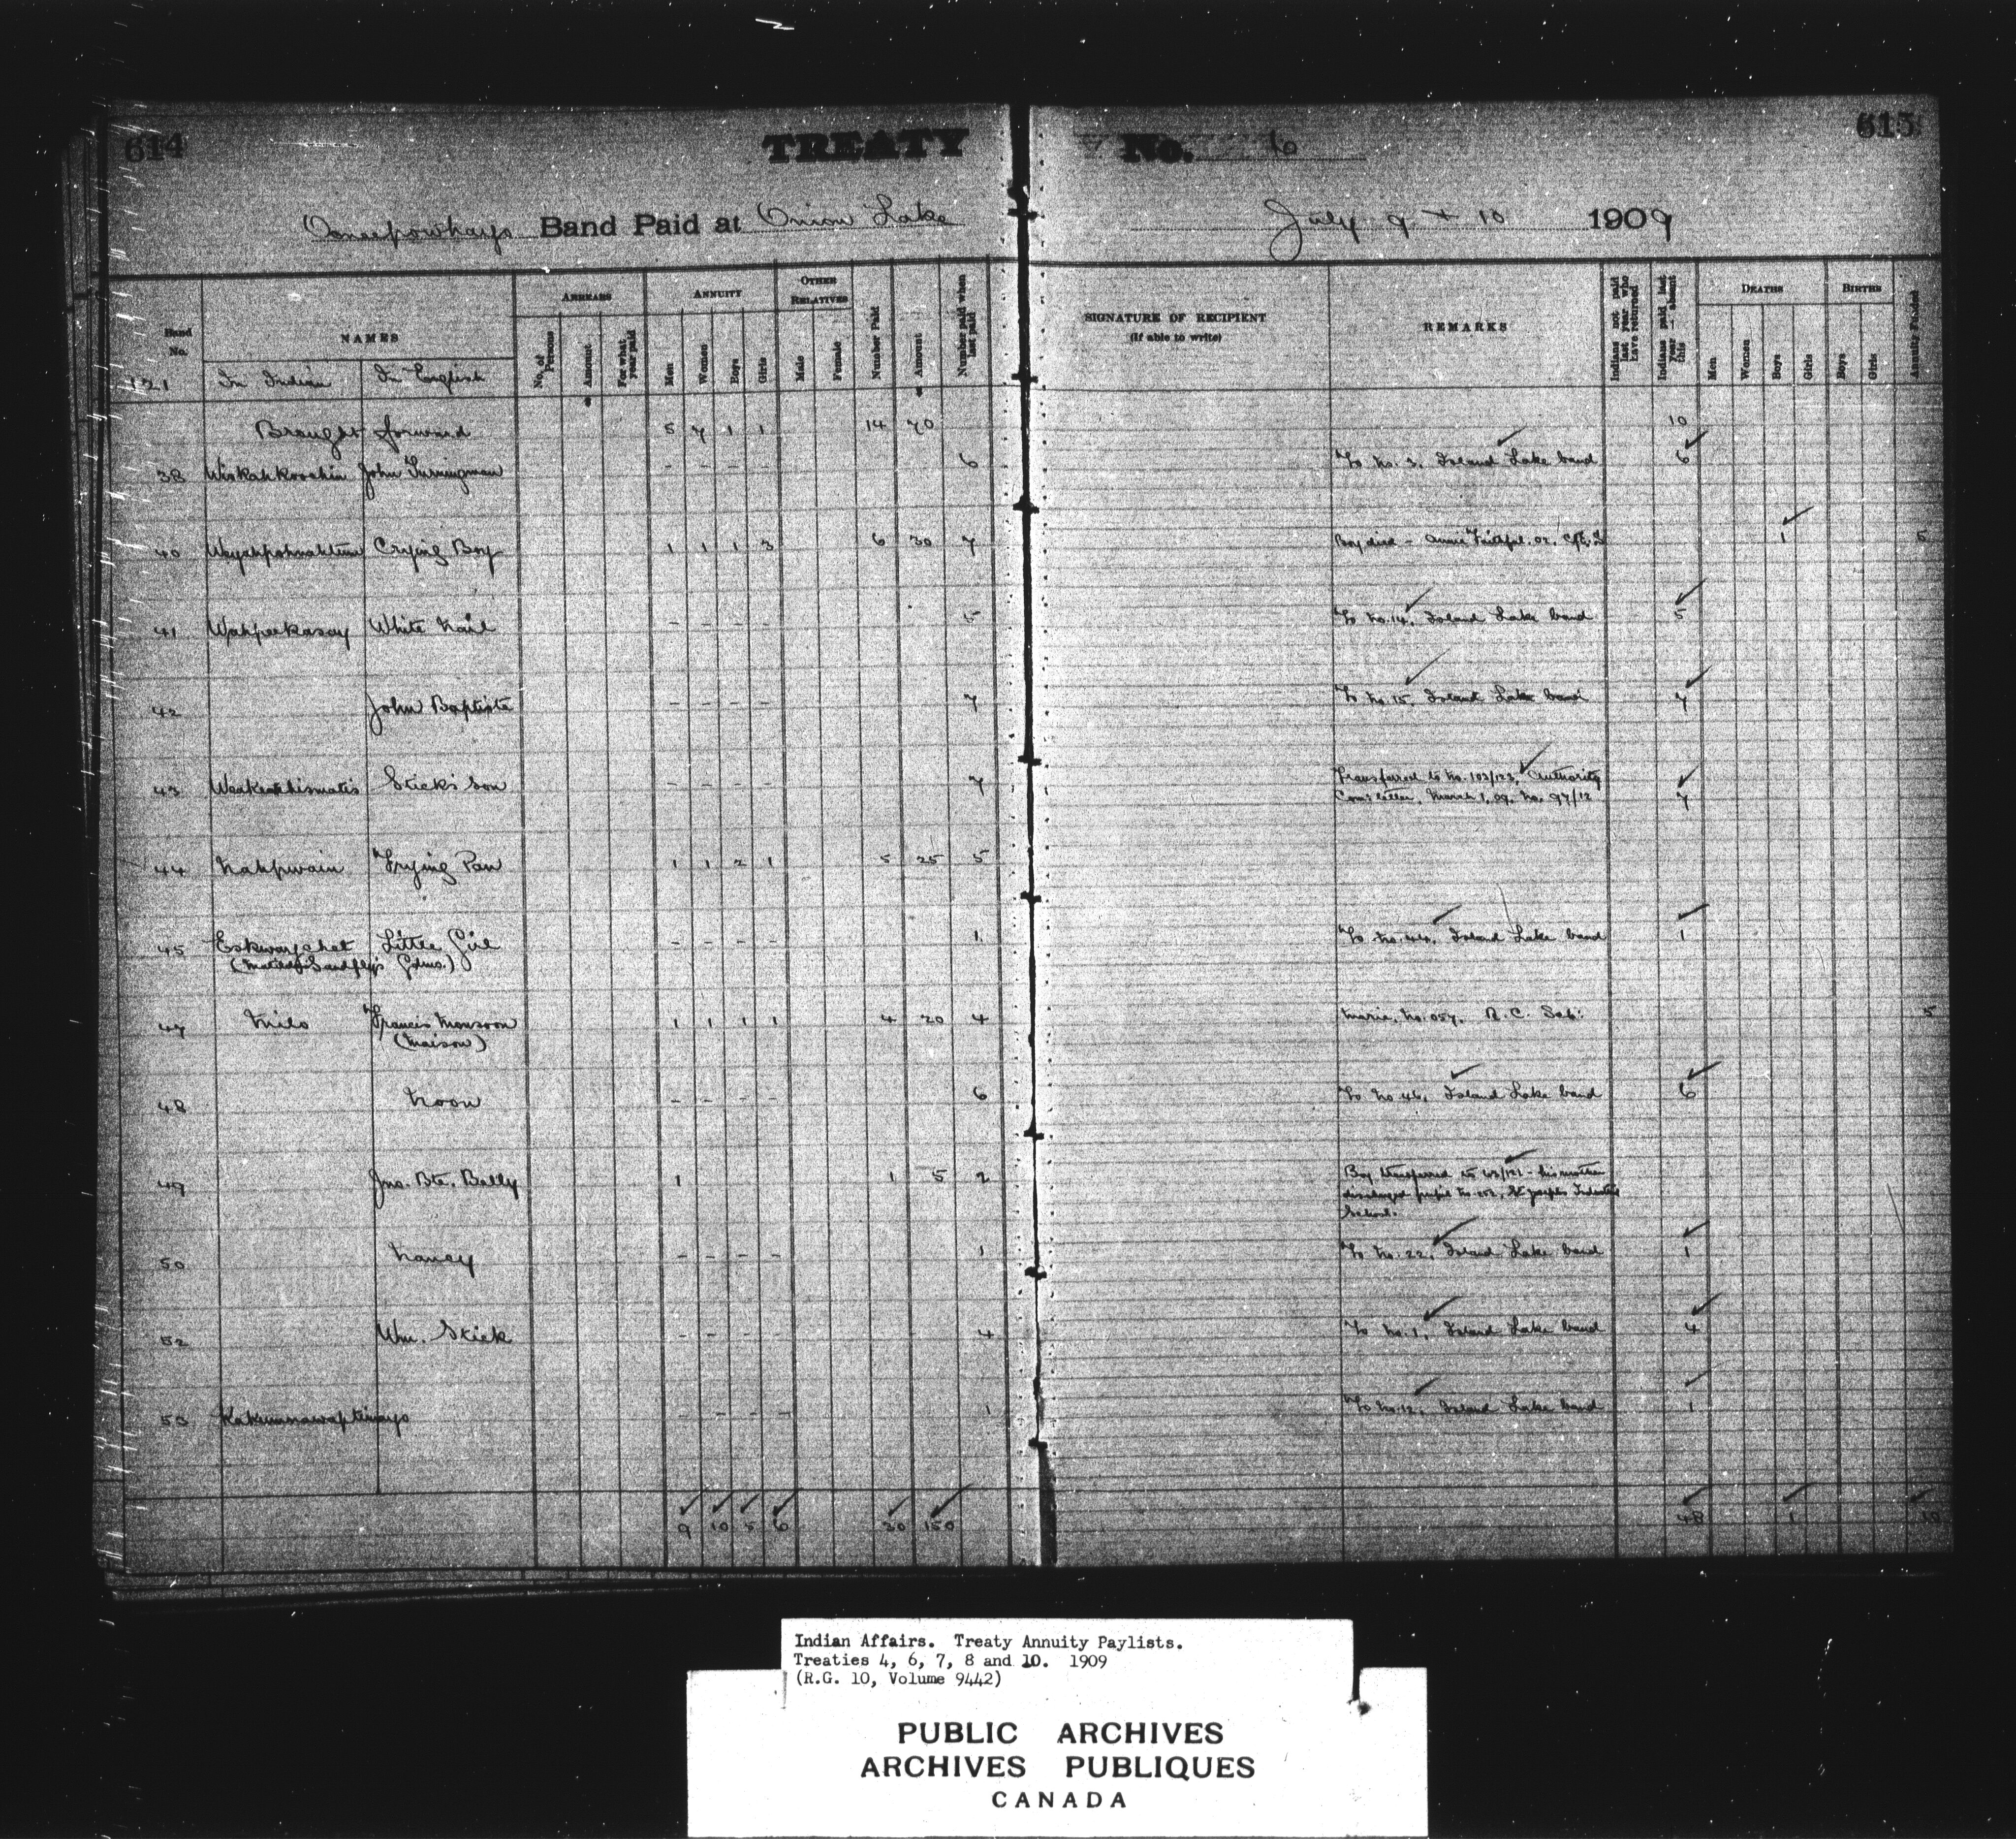 614
TREATY No. 6
615
Oneepowhayo Band Paid at Onion Lake
July 9 + 10 1909
Band No.
NAMES
ARREARS
ANNUITY
OTHER RELATIVES
No. of Persons
Amount
For what year paid
Men
Women
Boys
Girls
Male
Female
Number Paid
Amount
Number paid when last paid
SIGNATURE OF RECIPIENT
(if able to write)
REMARKS
Indians not paid last year who have returned
Indians paid last year - absent this
DEATHS
Men
Women
Boys
Girls
BIRTHS
Boys
Girls
Annuity Funded
121 In Indian In English
Brought forward 5 7 1 1 14 70 10
38 Wiskahkoochin John Turningman - - - - 6 To No. 3, Island Lake band 6
40 Crying Boy 1 1 1 3 6 30 7 Boy died - Annie Faithful, 02, 1 5
41 Wahpeekasay White Nail - - - - 5 To No. 14, Island Lake band 5
42 John Baptiste - - - - 7 To No. 15, Island Lake band 7
43 Stick's Son - - - - 7 Transferred to No. 103/123, Authority
Com's letter, March 1, 09, No. 97/12 7
44 Nahpwain Frying Pan 1 1 2 1 5 25 5
45 Eskwaychet Little Girl - - - - 1 To No. 44, Island Lake band 1
(Matilda Sandfly's Gdmo.)
47 Milo Francis Monsoon 1 1 1 1 4 20 4 Maria, No. 057, R. C. Sch: 5
(Maison)
48 Noon - - - - 6 To No 46, Island Lake band 6
49 Jno. Bte. Belly 1 1 5 2 Boy transferred to 63/121 - his mother
discharged pupil No. St Josephs Industrial
School.
50 Nancy - - - - 1 To No. 22, Island Lake band 1
52 Wm. Stick - - - - 4 To No. 1, Island Lake band 4
53 - - - - 1 To No. 12, Island Lake band 1
9 10 5 6 30 150 48 1 10
Indian Affairs. Treaty Annuity Paylists.
Treaties 4, 6, 7, 8 and 10. 1909
(R.G. 10, Volume 9442)
PUBLIC ARCHIVES
ARCHIVES PUBLIQUES
CANADA